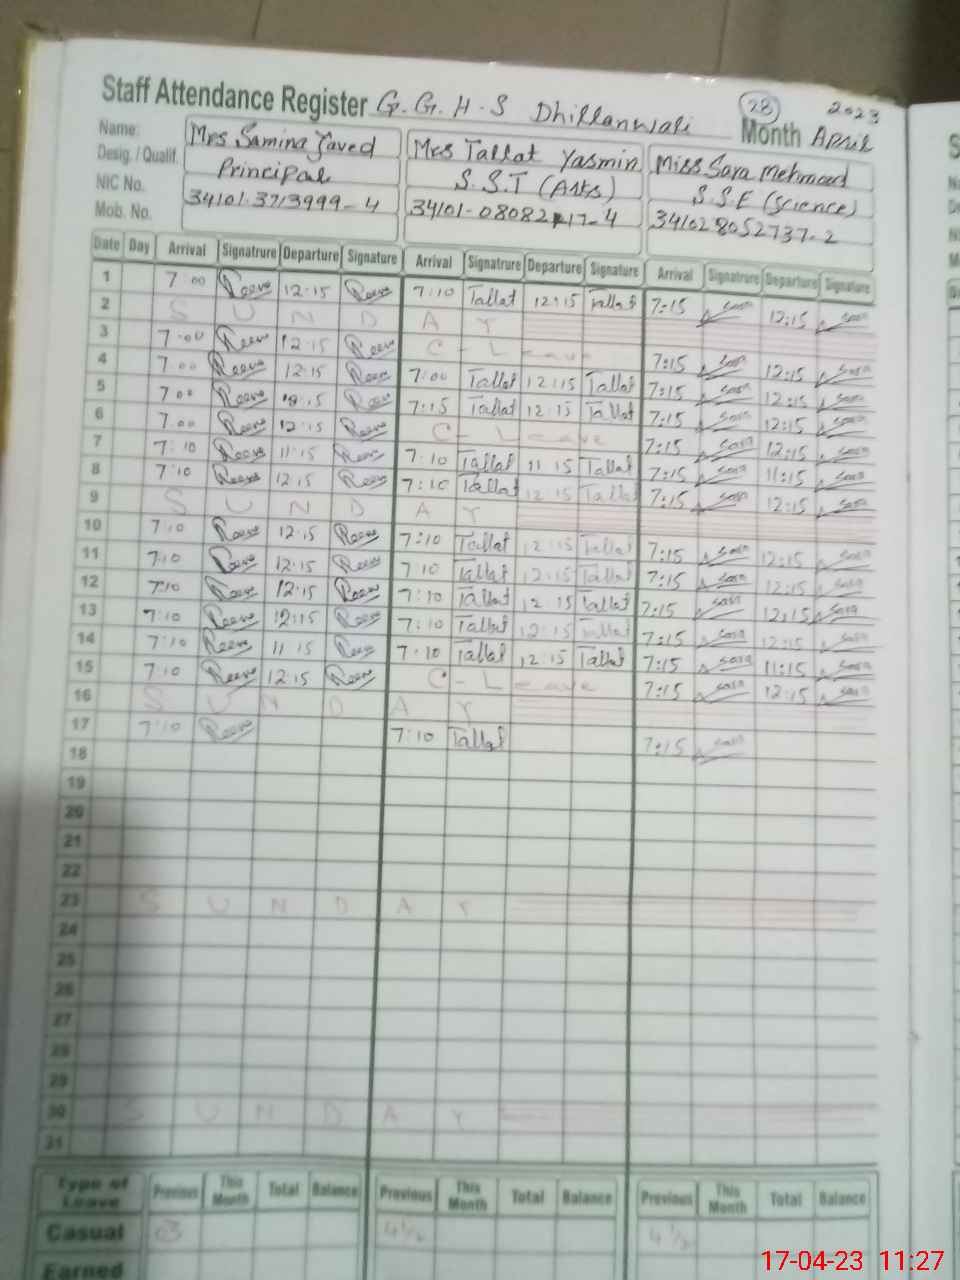 Staff Attendance Register G. G. H. S Dhillanwali (28) 2023
Month April
Name: Mrs Samina Javed Mrs Tallat Yasmin Miss Sara
Desig. / Qualif. Principal S.S.T (Arts) S.S.E (Science)
NIC No. 34101-3713999-4 34101-0808217-4 341028052737-2
Mob. No.
Date Day Arrival Signatrure Departure Signature Arrival Signatrure Departure Signature Arrival Signatrure Departure Signature
1 7 00 12:15 7:10 Tallat 12:15 Tallat 7:15 Sara 12:15 Sara
2 S U N D A Y
3 7:00 12:15 C - Leave 7:15 Sara 12:15 Sara
4 7:00 12:15 7:00 Tallat 12:15 Tallat 7:15 Sara 12:15 Sara
5 7 00 7:15 Tallat 12:15 Tallat 7:15 Sara 12:15 Sara
6 7:00 12:15 C - Leave 7:15 Sara 12:15 Sara
7 7:10 11:15 7:10 Tallat 11:15 Tallat 7:15 Sara 11:15 Sara
8 7:10 12:15 7:10 Tallat 12:15 Tallat 7:15 Sara 12:15 Sara
9 S U N D A Y
10 7:10 12:15 7:10 Tallat 12:15 Tallat 7:15 Sara 12:15 Sara
11 7:10 12:15 7:10 Tallat 12:15 Tallat 7:15 Sara 12:15 Sara
12 7:10 12:15 7:10 Tallat 12:15 Tallat 7:15 Sara 12:15 Sara
13 7:10 12:15 7:10 Tallat 12:15 Tallat 7:15 Sara 12:15 Sara
14 7:10 11:15 7:10 Tallat 12:15 Tallat 7:15 Sara 11:15 Sara
15 7:10 12:15 C - Leave 7:15 Sara 12:15 Sara
16 S U N D A Y
17 7:10 7:10 Tallat 7:15 Sara
18
19
20
21
22
23 S U N D A Y
24
25
26
27
28
29
30 S U N D A Y
31
Type of Leave Previous This Month Total Balance Previous This Month Total Balance Previous This Month Total Balance
Casual 03 4 1/2 4 1/2
Earned
17-04-23 11:27